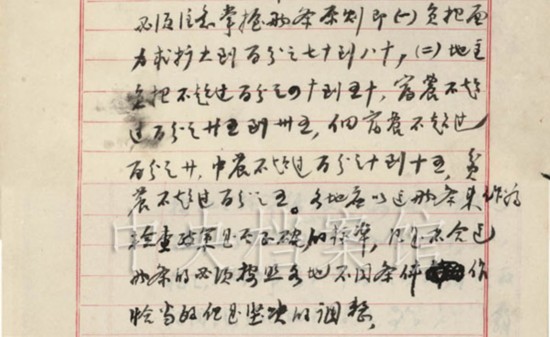 必须注意掌握两条原则即(一)负担面
力求扩大到百分之七十到八十,(二)地主
负担不超过百分之四十到五十,富农不超
过百分之廿五到卅五,佃富农不超过
百分之廿,中农不超过百分之十到十五,贫
农不超过百分之五。各地应以这两条来作为
检查政策是否正确的标准,凡是不合这
两条的必须按照各地不同条件作
恰当的但是坚决的调整,
中央档案馆